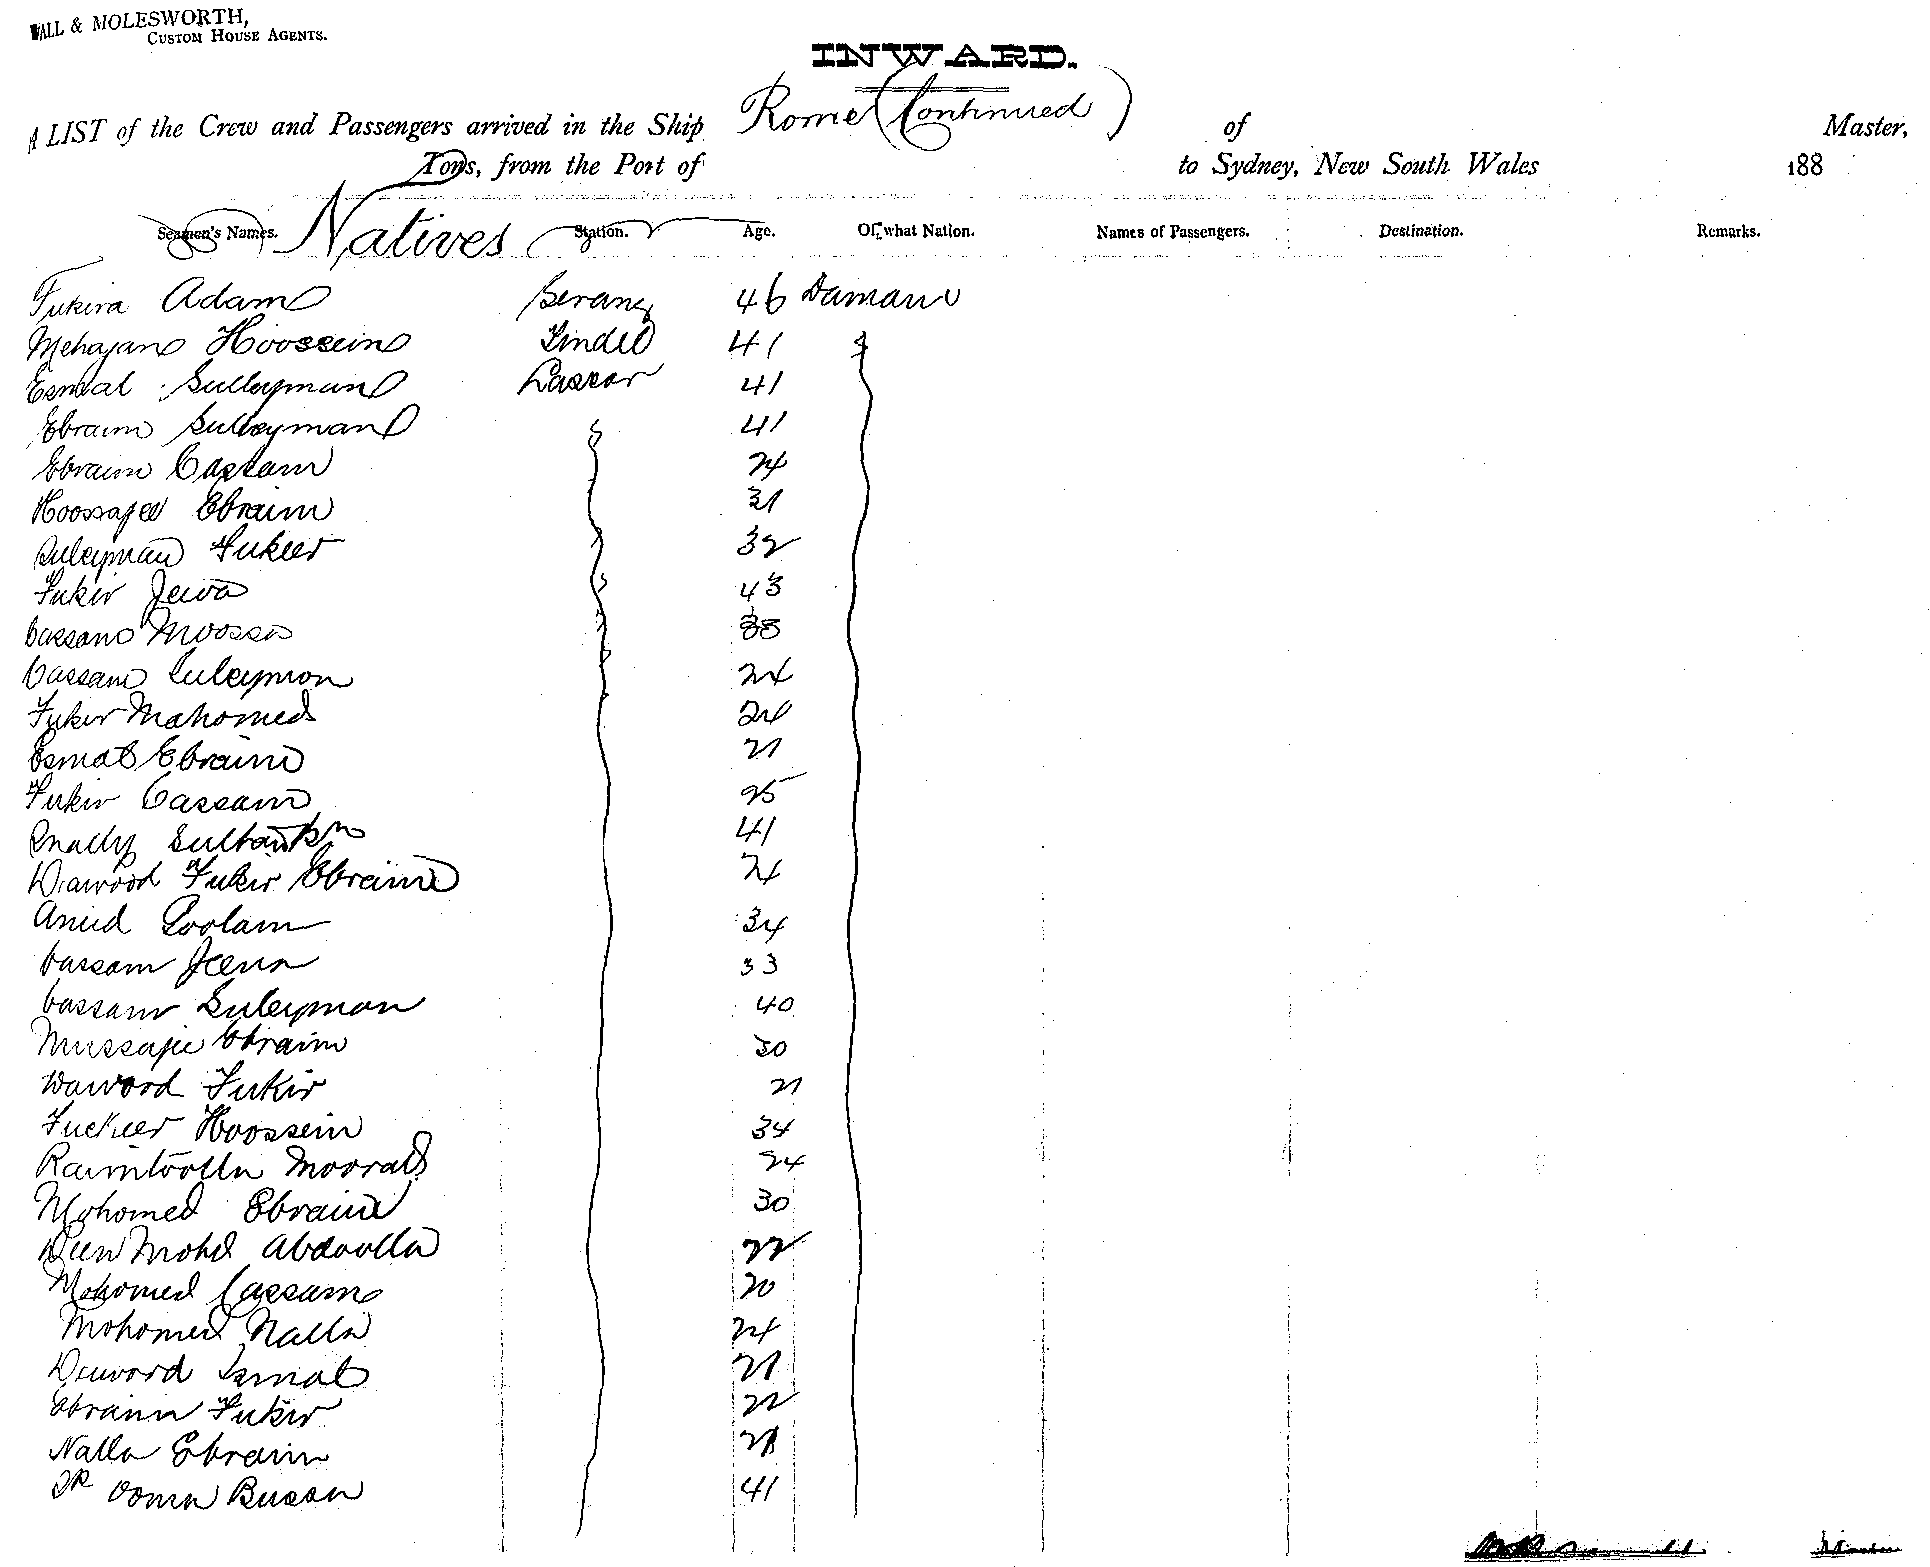 WALL & MOLESWORTH,
CUSTOM HOUSE AGENTS.
INWARD.
A LIST of the Crew and Passengers arrived in the Ship Rome (Continued) of Master,
Tons, from the Port of to Sydney, New South Wales 188
Seamen's Names. Natives Station. Age. Of what Nation. Names of Passengers. Destination. Remarks.
Fukira Adam Serang 46 Daman
Mehajan Hoossein Tindel 41
Esmal Sulleyman Lascar 41
Ebraim Sulleyman 41
Ebraim Cassam 24
Hoossajee Ebraim 31
Suleyman Fukeer 32
Fukir Jewa 43
Cassam Moossa
Cassam Suleyman 24
Fukir Mahomed 24
Esmal Ebraim 21
Fukir Cassam 25
Sultan 41
Dawood Fukir Ebraim 24
Amid Goolam 34
Cassam Jeena 33
Cassam Suleyman 40
Mussajee Ebraim 30
Dawood Fukir 21
Fuckeer Hoossein 34
Raimtoolla Moorad 24
Mohomed Ebraim 30
Deen Mohd Abdoolla 22
Mohomed Cassam 20
Mohomed Nalla 24
Dawood Esmal 21
Ebraim Fukir 22
Nalla Ebraim 21
Ooma Bussa 41